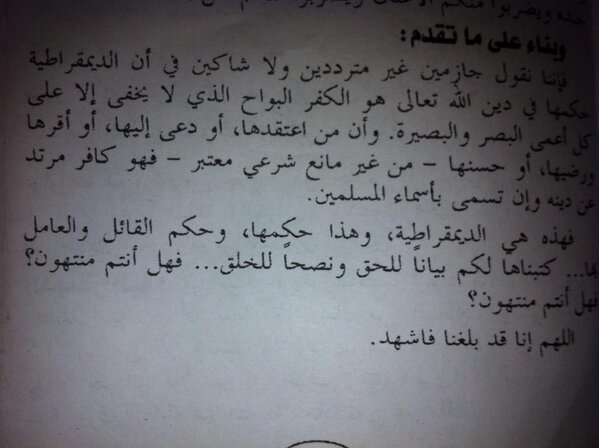 جنده ويضربوا منكم الأعناق ويضربوا
وبناء على ما تقدم:
فإننا نقول جازمين غير مترددين ولا شاكين في أن الديمقراطية
حكمها في دين الله تعالى هو الكفر البواح الذي لا يخفى إلا على
كل أعمى البصر والبصيرة. وأن من اعتقدها، أو دعى إليها، أو أقرها
ورضيها، أو حسنها – من غير مانع شرعي معتبر – فهو كافر مرتد
عن دينه وإن تسمى بأسماء المسلمين.
فهذه هي الديمقراطية، وهذا حكمها، وحكم القائل والعامل
بها... كتبناها لكم بياناً للحق ونصحاً للخلق... فهل أنتم منتهون؟
فهل أنتم منتهون؟
اللهم إنا قد بلغنا فاشهد.